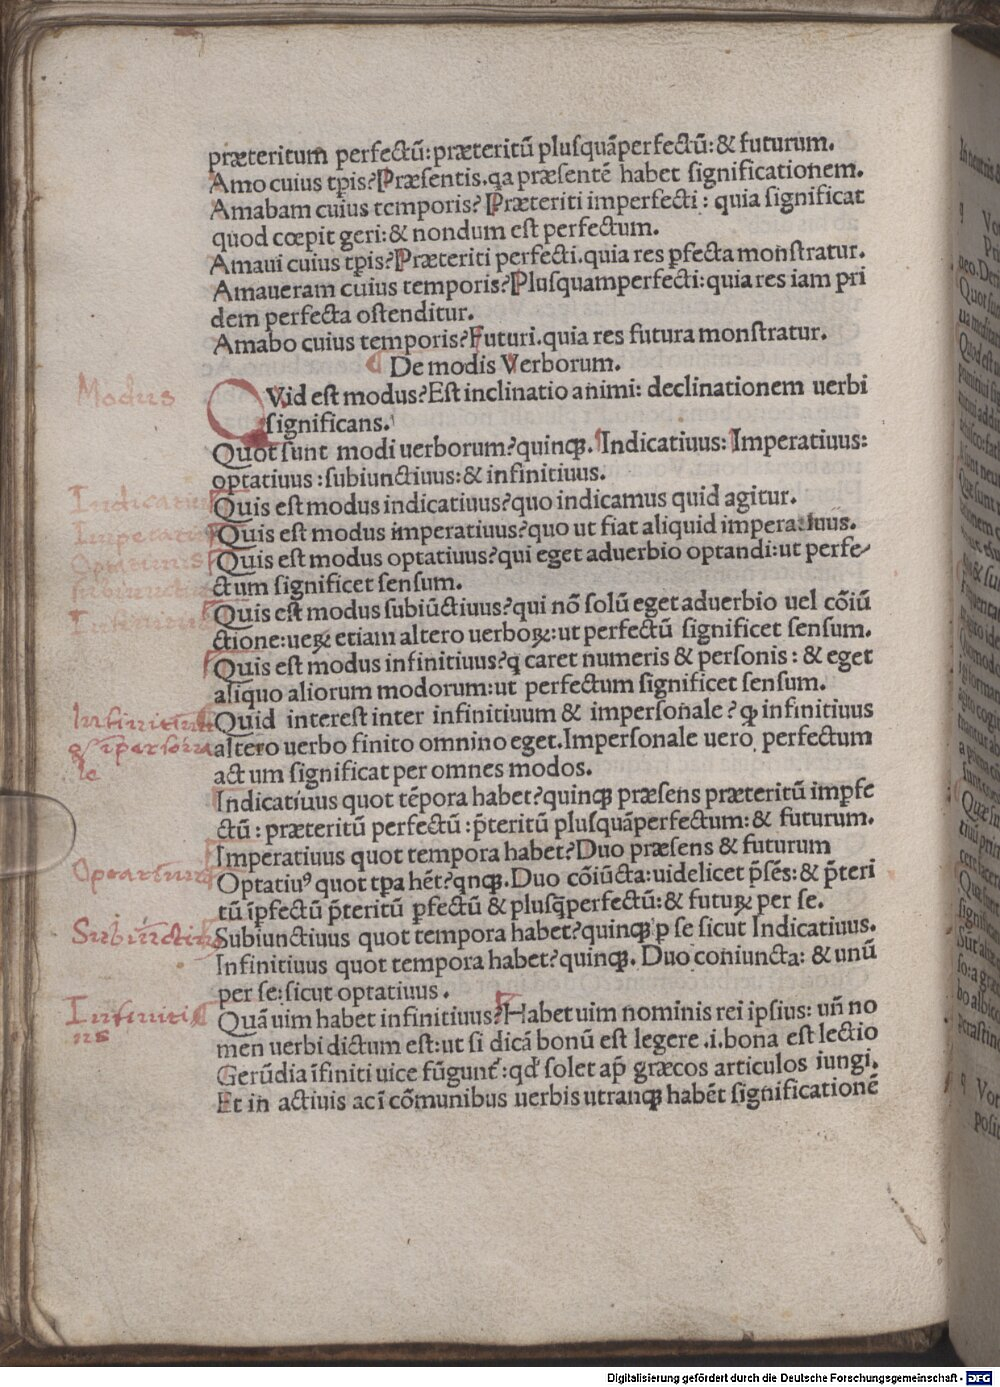 præteritum perfectũ: præteritũ plusquãperfectũ: & futurum.
Amo cuius tp̃is? Præsentis. qa præsentẽ habet significationem.
Amabam cuius temporis? Præteriti imperfecti: quia significat
quod cœpit geri: & nondum est perfectum.
Amaui cuius tp̃is? Præteriti perfecti. quia res ꝑfecta monstratur.
Amaueram cuius temporis? Plusquamperfecti: quia res iam pri
dem perfecta ostenditur.
Amabo cuius temporis? Futuri. quia res futura monstratur.
De modis Verborum.
Modus
QVid est modus? Est inclinatio animi: declinationem uerbi
significans.
Quot sunt modi uerborum? quinqꝫ. Indicatiuus: Imperatiuus:
optatiuus: subiunctiuus: & infinitiuus.
Indicatiuus
Quis est modus indicatiuus? quo indicamus quid agitur.
Imperatiuus
Quis est modus imperatiuus? quo ut fiat aliquid imperatiuus.
Optatiuus
Quis est modus optatiuus? qui eget aduerbio optandi: ut perfe⸗
ctum significet sensum.
subiunctiuus
Quis est modus subiũctiuus? qui nõ solũ eget aduerbio uel cõiũ
Infinitiuus
ctione: ueꝝ etiam altero uerboꝝ: ut perfectũ significet sensum.
Quis est modus infinitiuus? q caret numeris & personis: & eget
aliquo aliorum modorum: ut perfectum significet sensum.
Infinitiuū
Quid interest inter infinitiuum & impersonale? ꝙ infinitiuus
& īpersona
altero uerbo finito omnino eget. Impersonale uero perfectum
le
actum significat per omnes modos.
Indicatiuus quot tẽpora habet? quinqꝫ præsens præteritũ imꝑfe
ctũ: præteritũ perfectũ: p̃teritũ plusquãperfectum: & futurum.
Imperatiuus quot tempora habet? Duo præsens & futurum
Optatiuus
Optatiuꝰ quot tp̃a hẽt? qnqꝫ. Duo cõiũcta: uidelicet p̃sẽs: & p̃teri
tũ ĩpfectũ p̃teritũ ꝑfectũ & plusq̃perfectũ: & futuꝝ per se.
Subiūctiuus
Subiunctiuus quot tempora habet? quinqꝫ ꝑ se sicut Indicatiuus.
Infinitiuus quot tempora habet? quinqꝫ. Duo coniuncta: & unũ
per se: sicut optatiuus.
Infinitiuus
Quã uim habet infinitiuus? Habet uim nominis rei ipsius: uñ no
men uerbi dictum est: ut si dicã bonũ est legere .i. bona est lectio
Gerũdia ĩfiniti uice fũgunt̃: qd̃ solet ap̃ græcos articulos iungi.
Et in actiuis ac ĩ cõmunibus uerbis utranqꝫ habẽt significationẽ
Digitalisierung gefördert durch die Deutsche Forschungsgemeinschaft - DFG